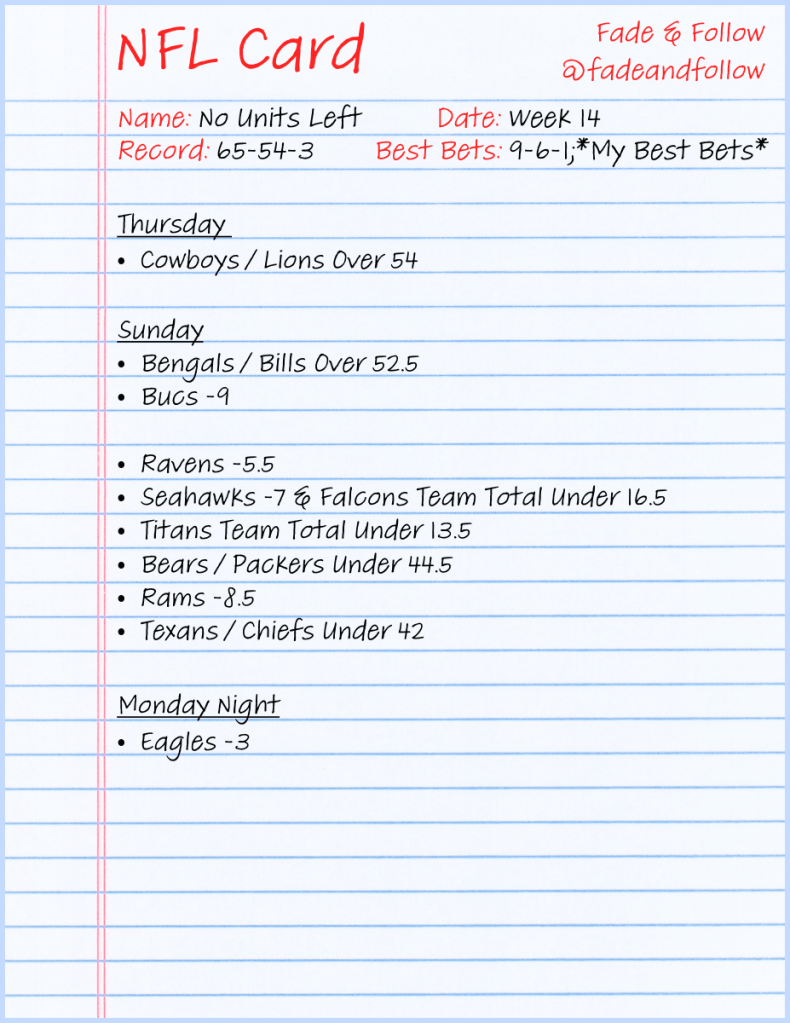 NFL Card
Fade & Follow
@fadeandfollow
Name: No Units Left Date: Week 14
Record: 65-54-3 Best Bets: 9-6-1;*My Best Bets*
Thursday
• Cowboys / Lions Over 54
Sunday
• Bengals / Bills Over 52.5
• Bucs -9
• Ravens -5.5
• Seahawks -7 & Falcons Team Total Under 16.5
• Titans Team Total Under 13.5
• Bears / Packers Under 44.5
• Rams -8.5
• Texans / Chiefs Under 42
Monday Night
• Eagles -3